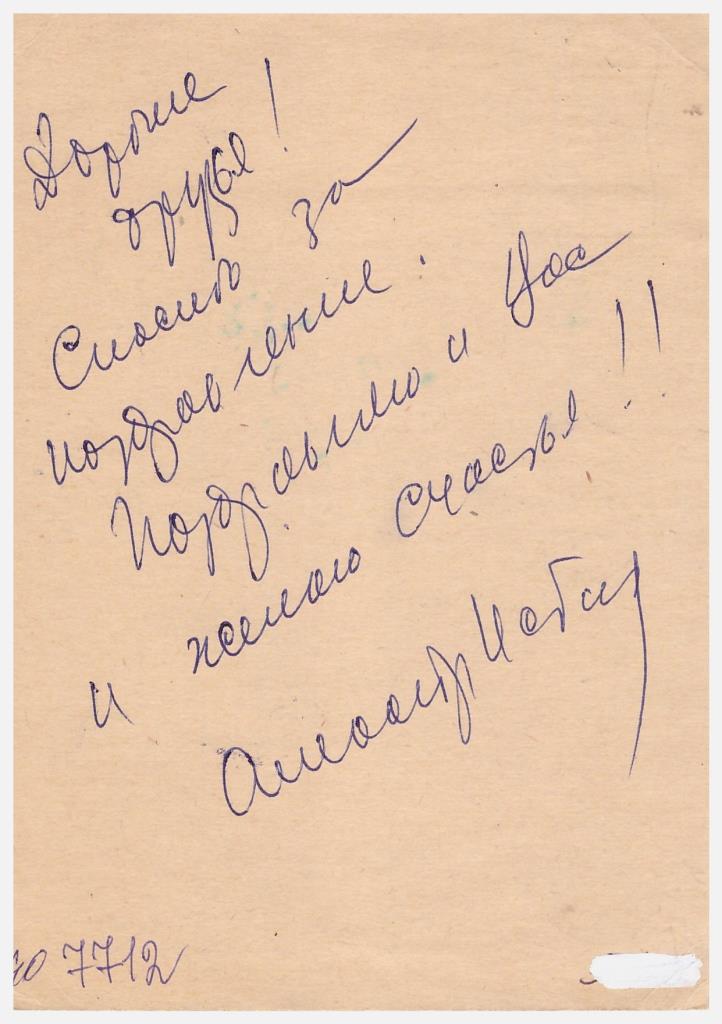 Дорогие
друзья!
Спасибо за
поздравление.
Поздравляю и Вас
и желаю счастья!!
Александр
ю 7712